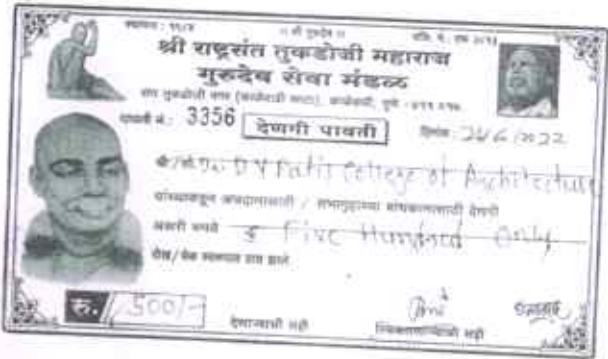 ॥ श्री गुरुदेव ॥
श्री राष्ट्रसंत तुकडोजी महाराज
गुरुदेव सेवा मंडळ
पावती नं.: 3356
देणगी पावती
दिनांक: 26/6/2022
श्री/श्री. Dr. D Y Patil College of Architecture
यांच्याकडून अन्नदानासाठी / सभागृहाच्या बांधकामासाठी देणगी
अक्षरी रुपये Five Hundred Only
रोख/चेक स्वरूपात प्राप्त झाले
रु. 500/-
देणाऱ्याची सही
स्विकारणाऱ्याची सही